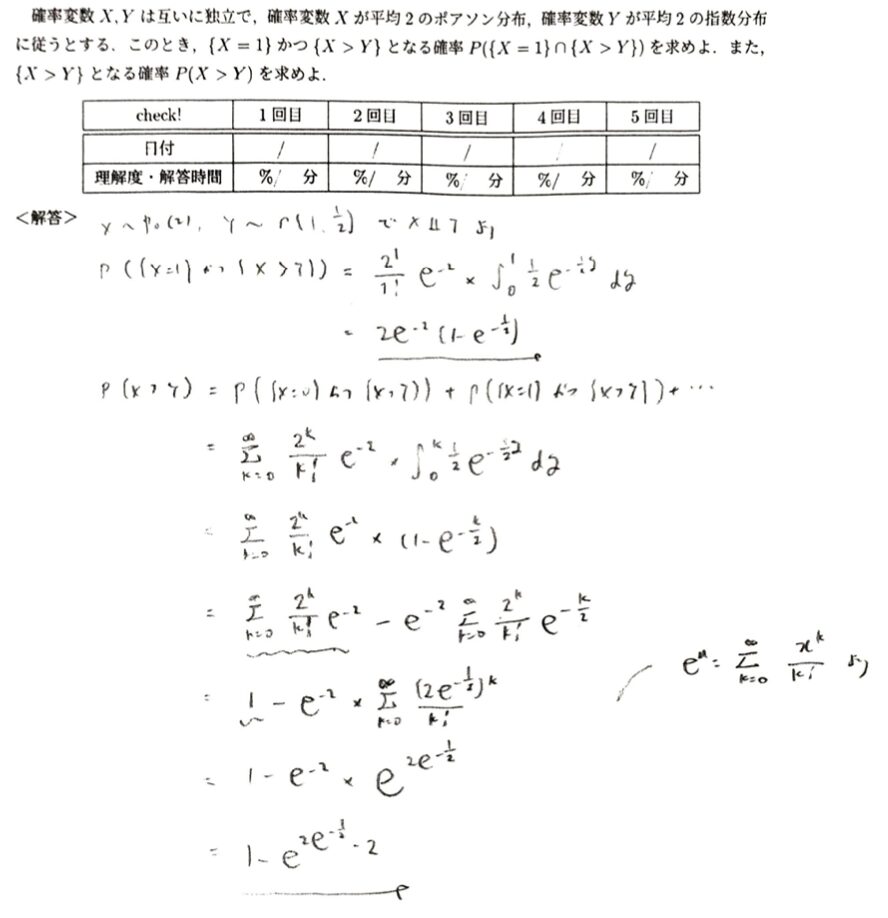 確率変数 X, Y は互いに独立で，確率変数 X が平均 2 のポアソン分布，確率変数 Y が平均 2 の指数分布
に従うとする．このとき，{X = 1} かつ {X > Y} となる確率 P({X = 1}∩{X > Y}) を求めよ．また，
{X > Y} となる確率 P(X > Y) を求めよ．
check! 1 回目 2 回目 3 回目 4 回目 5 回目
日付 / / / / /
理解度・解答時間 %/ 分 %/ 分 %/ 分 %/ 分 %/ 分
<解答> X ~ Po(2), Y ~ Γ(1, 1/2) で X ⫫ Y より
P({X=1} かつ {X>Y}) = 2^1/1! e^{-2} × ∫_0^1 1/2 e^{-1/2 y} dy
= 2e^{-2} (1 - e^{-1/2})
P(X>Y) = P({X=0} かつ {X>Y}) + P({X=1} かつ {X>Y}) + …
= Σ_{k=0}^∞ 2^k/k! e^{-2} × ∫_0^k 1/2 e^{-1/2 y} dy
= Σ_{k=0}^∞ 2^k/k! e^{-2} × (1 - e^{-k/2})
= Σ_{k=0}^∞ 2^k/k! e^{-2} - e^{-2} Σ_{k=0}^∞ 2^k/k! e^{-k/2}
= 1 - e^{-2} × Σ_{k=0}^∞ (2e^{-1/2})^k/k!
e^x = Σ_{k=0}^∞ x^k/k! より
= 1 - e^{-2} × e^{2e^{-1/2}}
= 1 - e^{2e^{-1/2} - 2}